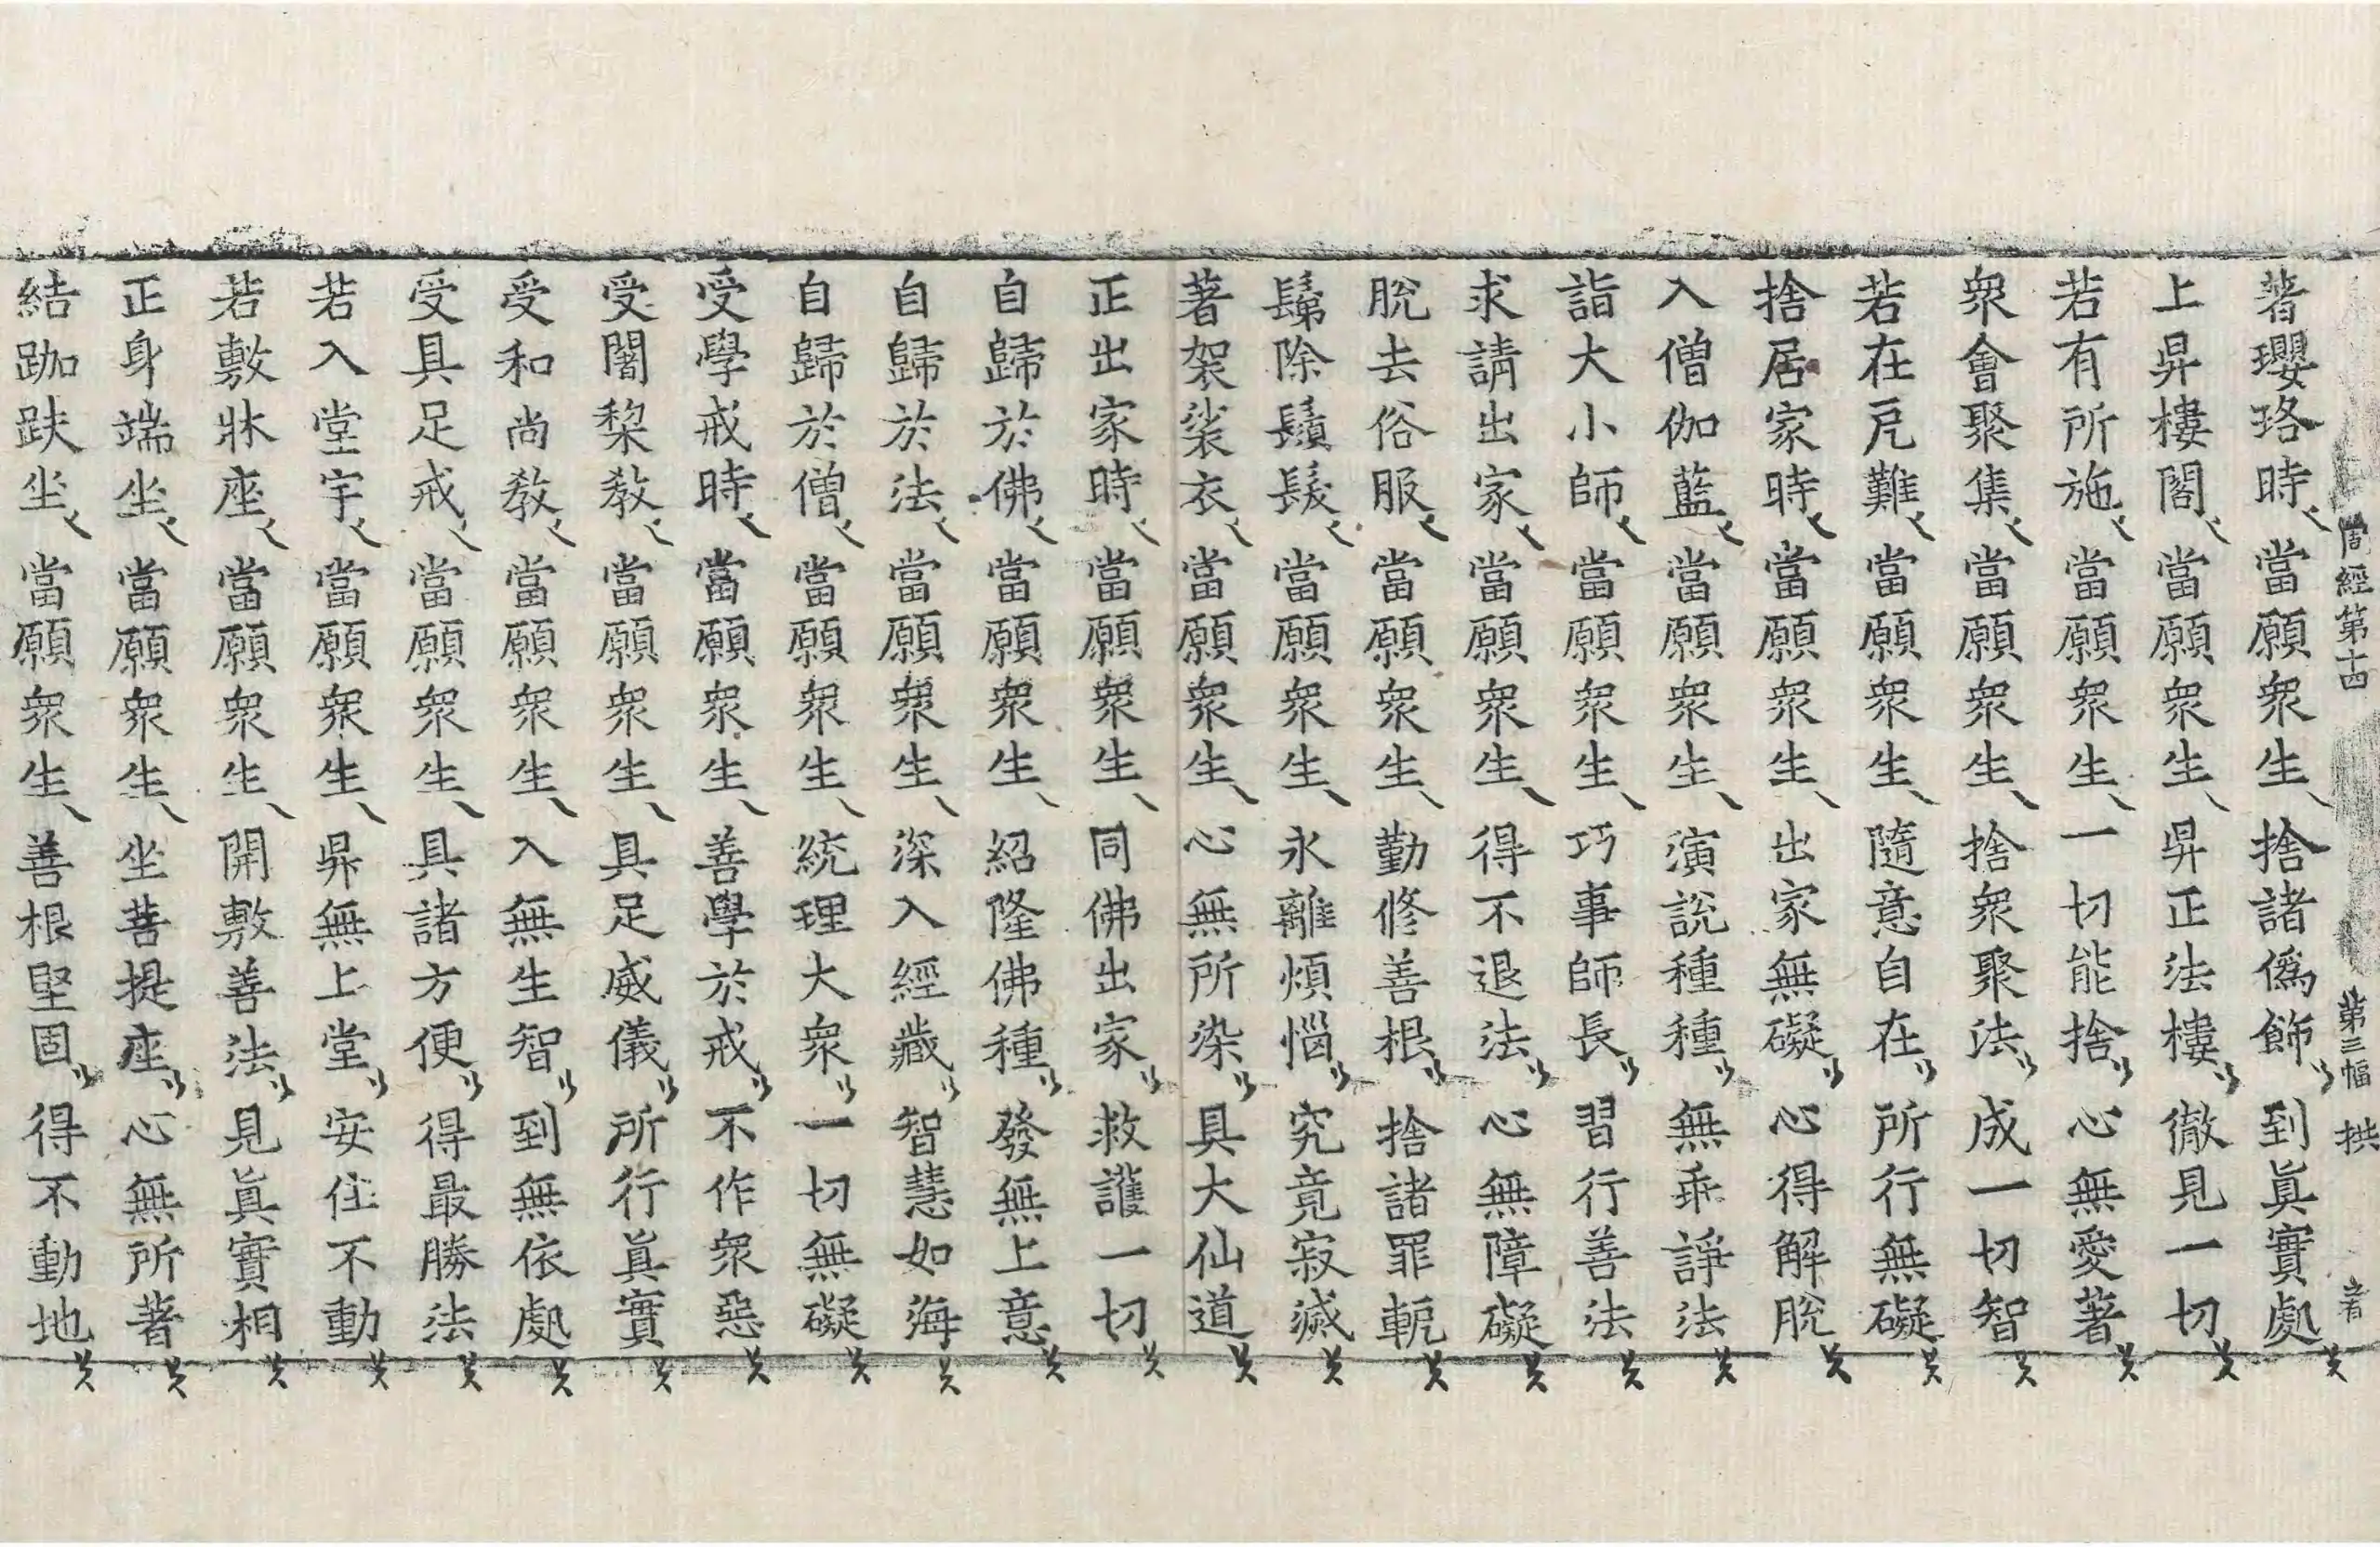 周經第十四 第三幅 拱
著瓔珞時 當願衆生 捨諸僞飾 到眞實處
上昇樓閣 當願衆生 昇正法樓 徹見一切
若有所施 當願衆生 一切能捨 心無愛著
衆會聚集 當願衆生 捨衆聚法 成一切智
若在戹難 當願衆生 隨意自在 所行無礙
捨居家時 當願衆生 出家無礙 心得解脫
入僧伽藍 當願衆生 演說種種 無乖諍法
詣大小師 當願衆生 巧事師長 習行善法
求請出家 當願衆生 得不退法 心無障礙
脫去俗服 當願衆生 勤修善根 捨諸罪軛
鬀除鬚髮 當願衆生 永離煩惱 究竟寂滅
著袈裟衣 當願衆生 心無所染 具大仙道
正出家時 當願衆生 同佛出家 救護一切
自歸於佛 當願衆生 紹隆佛種 發無上意
自歸於法 當願衆生 深入經藏 智慧如海
自歸於僧 當願衆生 統理大衆 一切無礙
受學戒時 當願衆生 善學於戒 不作衆惡
受闍棃教 當願衆生 具足威儀 所行眞實
受和尚教 當願衆生 入無生智 到無依處
受具足戒 當願衆生 具諸方便 得最勝法
若入堂宇 當願衆生 昇無上堂 安住不動
若敷牀座 當願衆生 開敷善法 見眞實相
正身端坐 當願衆生 坐菩提座 心無所著
結跏趺坐 當願衆生 善根堅固 得不動地